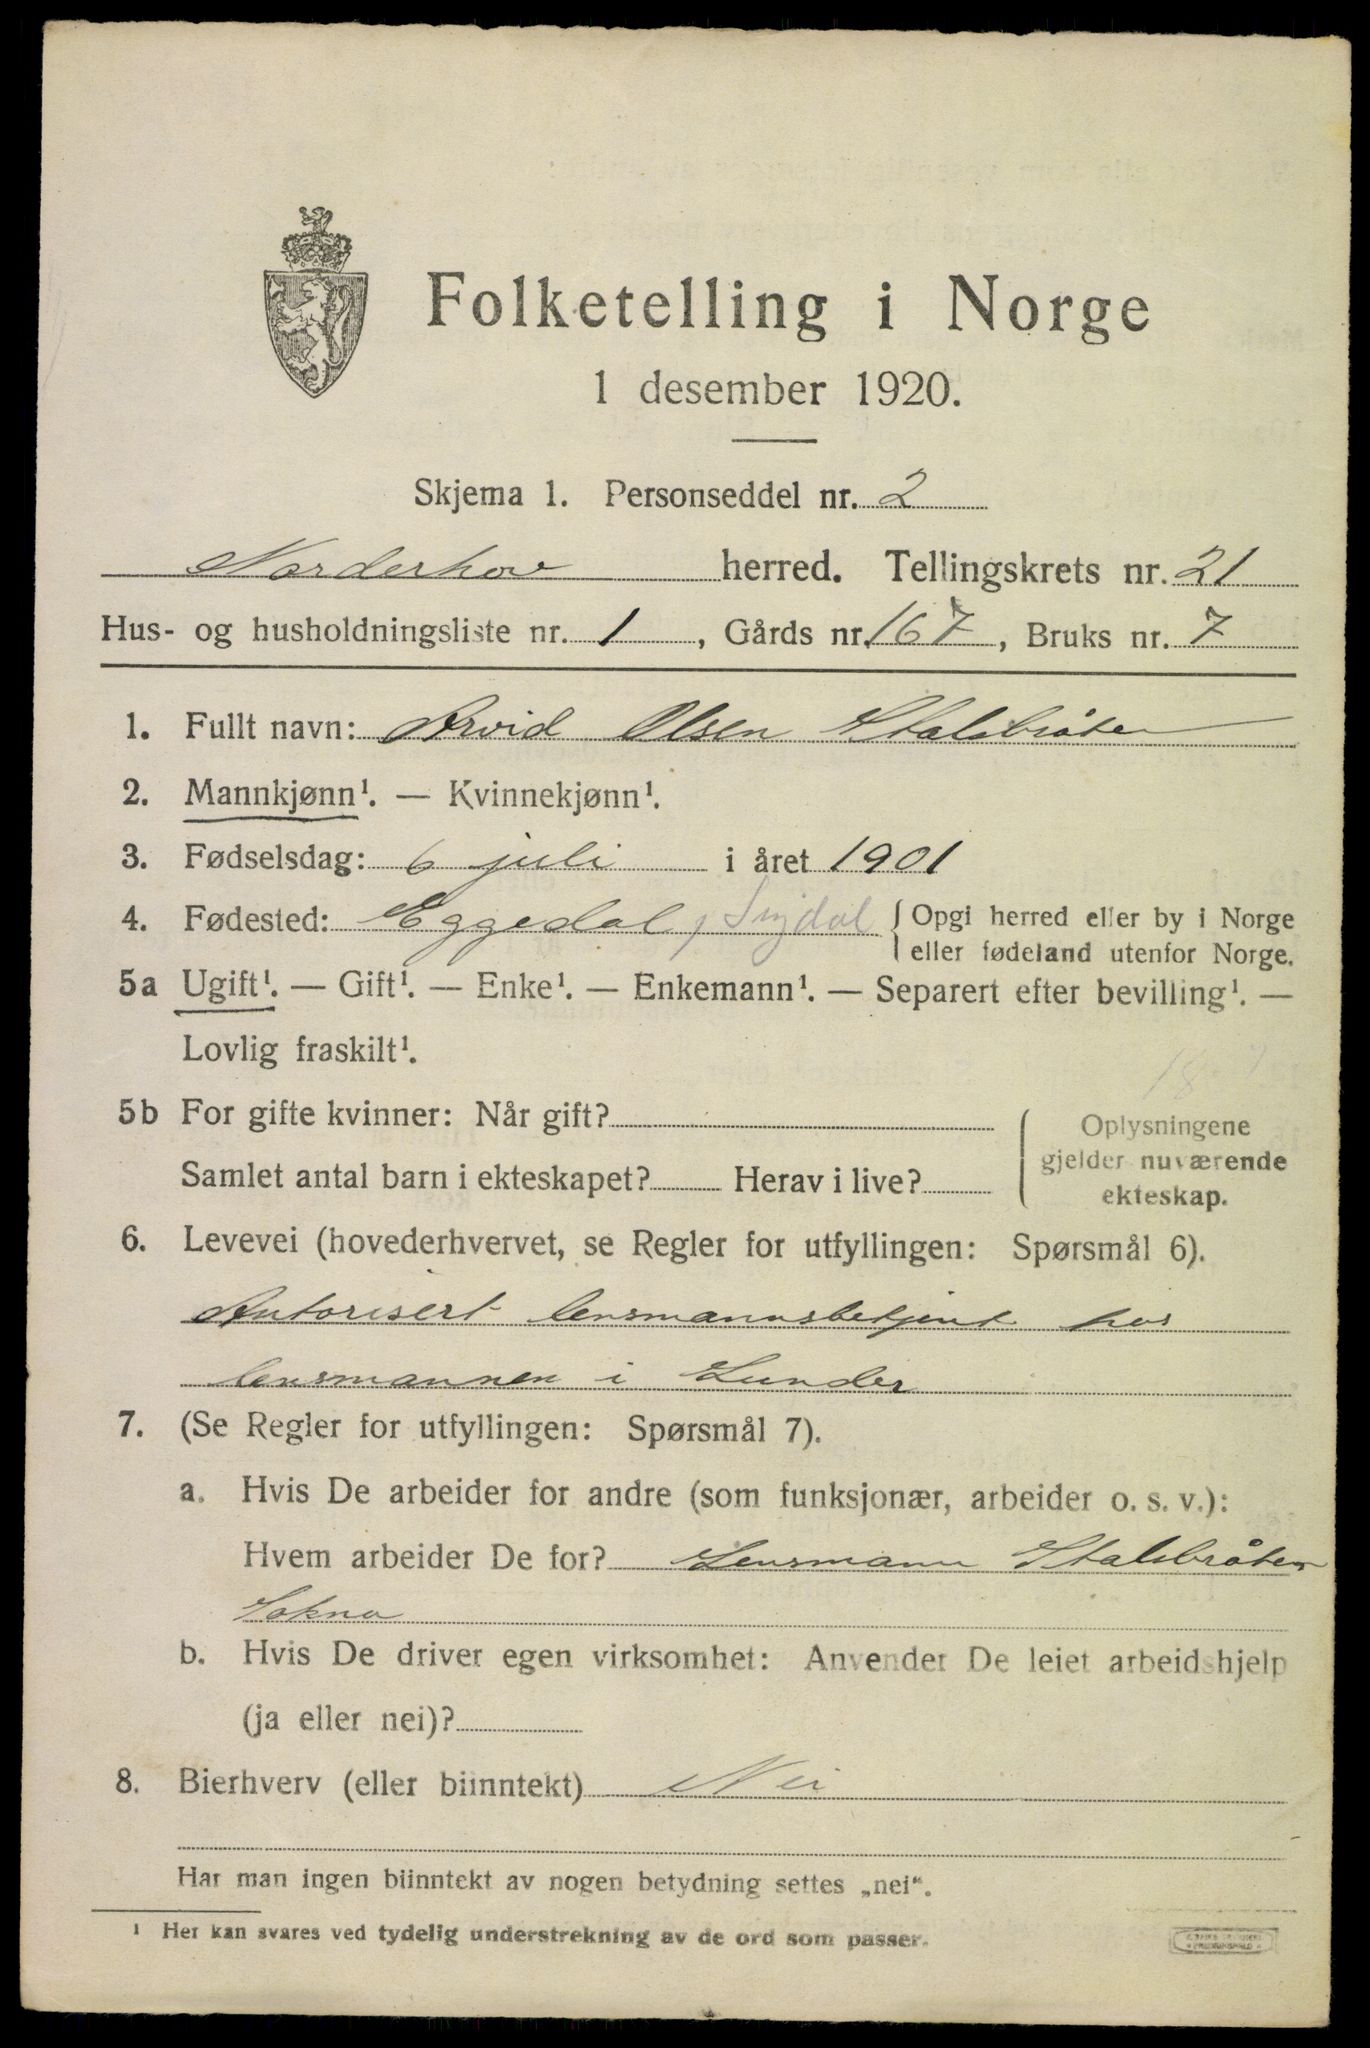 Folketelling i Norge
1 desember 1920.
Skjema 1. Personseddel nr. 2
Norderhov herred. Tellingskrets nr. 21
Hus- og husholdningsliste nr. 1, Gårds nr. 167, Bruks nr. 7
1. Fullt navn: Arvid Olsen Stalsbråten
2. Mannkjønn¹. — Kvinnekjønn¹.
3. Fødselsdag: 6 juli i året 1901
4. Fødested: Eggedal, Sigdal { Opgi herred eller by i Norge
eller fødeland utenfor Norge.
5a Ugift¹. — Gift¹. — Enke¹. — Enkemann¹. — Separert efter bevilling¹. —
Lovlig fraskilt¹.
5b For gifte kvinner: Når gift?
Samlet antal barn i ekteskapet? Herav i live?
Oplysningene
gjelder nuværende
ekteskap.
6. Levevei (hovederhvervet, se Regler for utfyllingen: Spørsmål 6).
Autorisert lensmannsbetjent hos
lensmannen i Lunder
7. (Se Regler for utfyllingen: Spørsmål 7).
a. Hvis De arbeider for andre (som funksjonær, arbeider o. s. v.):
Hvem arbeider De for? Lensmann Stalsbråten
Sokna
b. Hvis De driver egen virksomhet: Anvender De leiet arbeidshjelp
(ja eller nei)?
8. Bierhverv (eller biinntekt) Nei
Har man ingen biinntekt av nogen betydning settes „nei“.
¹ Her kan svares ved tydelig understrekning av de ord som passer.